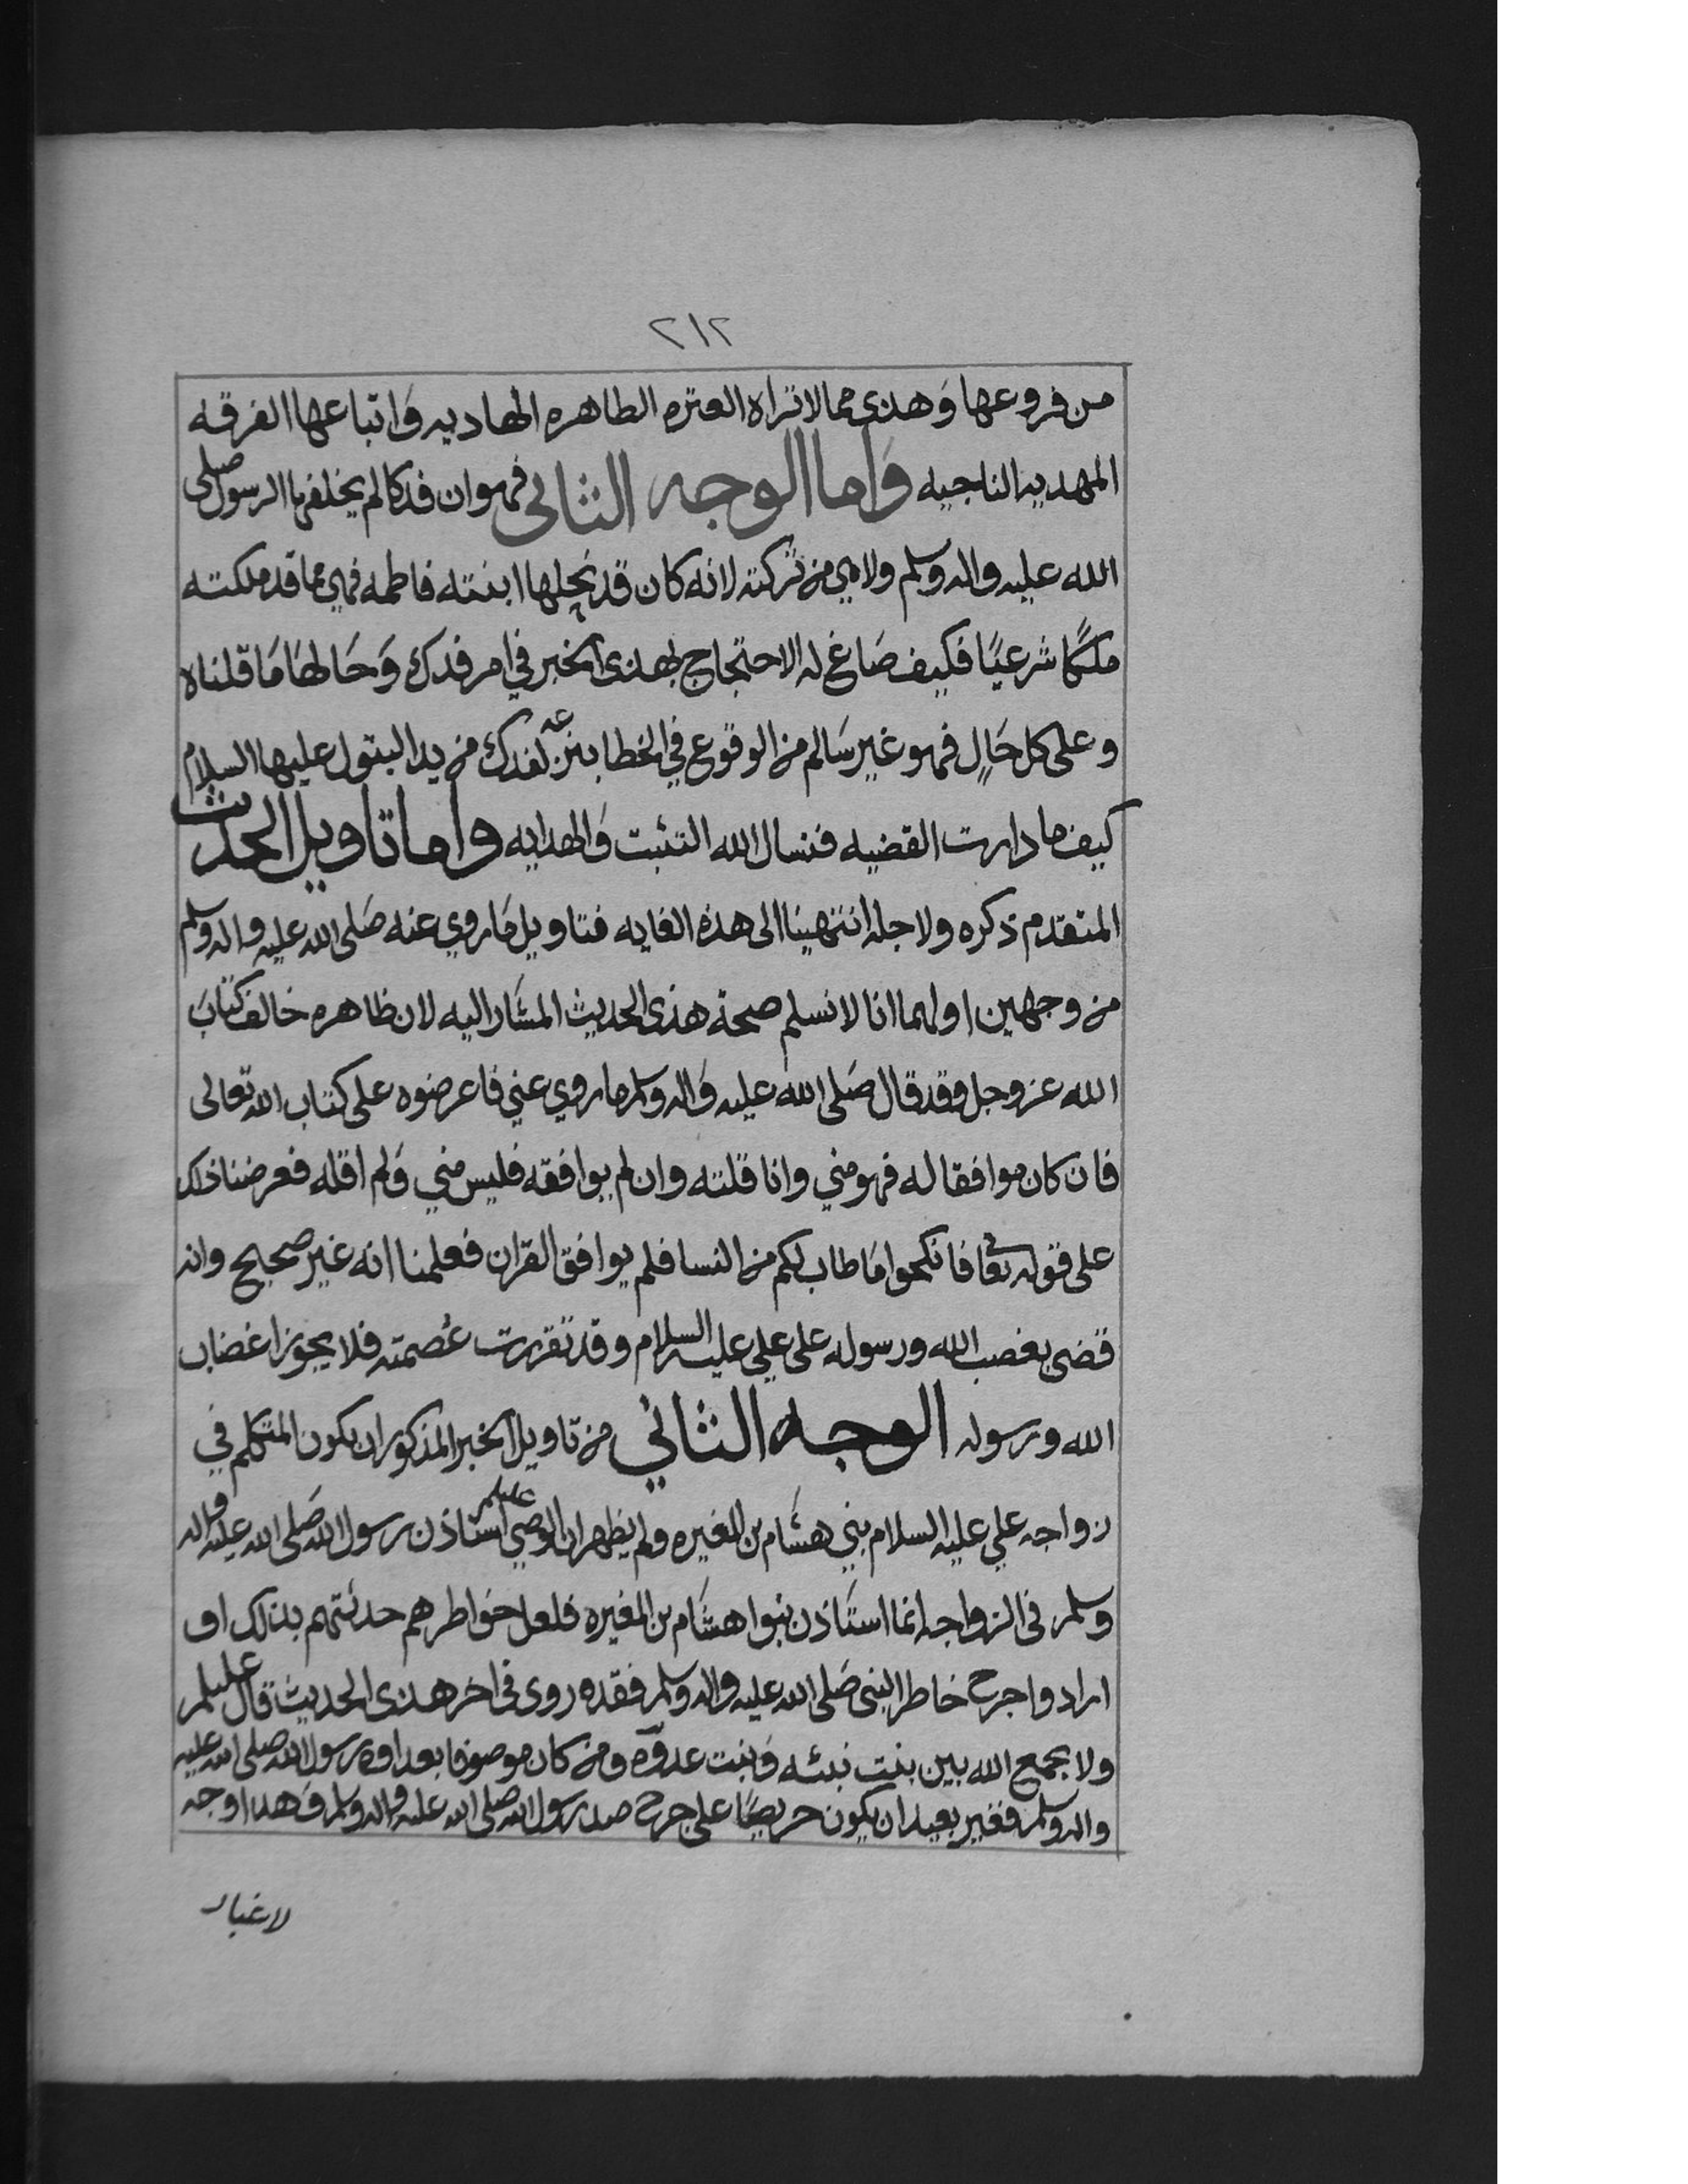 ٢١٢
من فروعها وَهذى مما لا تراه العتره الطاهره الهاديه وَاتباعها الفرقه
المهديه الناجيه وَاما الوجه الثانى فهو ان فدكا لم يخلفها الرسول صلى
الله عليه واله وسلم ولا هي من تركته لانه كان قد نحلها ابنته فاطمه فهي مما قد ملكته
ملكًا شرعيًا فكيف صَاغ له الاحتجاج بهذى الخبر في امر فدك وَحَالهَا مَا قلناه
وعلى كل حَالٍ فهو غير سَالم من الوقوع في الخطا بنزعه لفدك من يد البتول عليها السلام
كيف ما دارت القضيه فنسال الله التثبت وَالهدايه واما تاويل الحديث
المتقدم ذكره ولاجله انتهينا الى هذه الغايه فتاويل مَا روي عنه صَلى الله عليه واله وسلم
من وجهين اولهما انا لا نسلم صحة هذى الحديث المشَار اليه لان ظاهره خالف كتابَ
الله عز وجل وقد قال صَلى الله عليه وَاله وسلم ما روي عني فاعرضوه على كتاب الله تعالى
فان كان موافقا له فهو مني وانا قلته وان لم يوافقه فليس مني وَلم اقله فعرضنا ذلك
على قوله تعالى فانكحوا مَا طاب لكم من النسا فلم يوافق القران فعلمنا انه غير صحيح وانه
قضى بغضب الله ورسوله على علي عليه السلام وقد تقررت عُصمته فلا يجوز اغضاب
الله ورسوله الوجه الثاني من تاويل الخبر المذكور ان يكون المتكلم في
زواجه علي عليه السلام بني هشَام بن المغيره ولم يظهر ان الوصي عليلم استاذن رسول الله صَلى الله عليه واله
وسلم في الزواجه انما استَاذن بنوا هشَام بن المغيره فلعل خواطرهم حدثتهم بذلك او
ارادوا جرح خاطر النبي صَلى الله عليه واله وسلم فقد روى في اخر هذى الحديث قال عليلم
ولا يجمع الله بين بنت نبئه وَبنت عدوّه ومن كان موصوفا بعداوه رسول الله صلى الله عليه
واله وسلم فغير بعيد ان يكون حريصًا على جرح صدر رسول الله صلى الله عليه واله وسلم وَهذا وجه
لا غبار